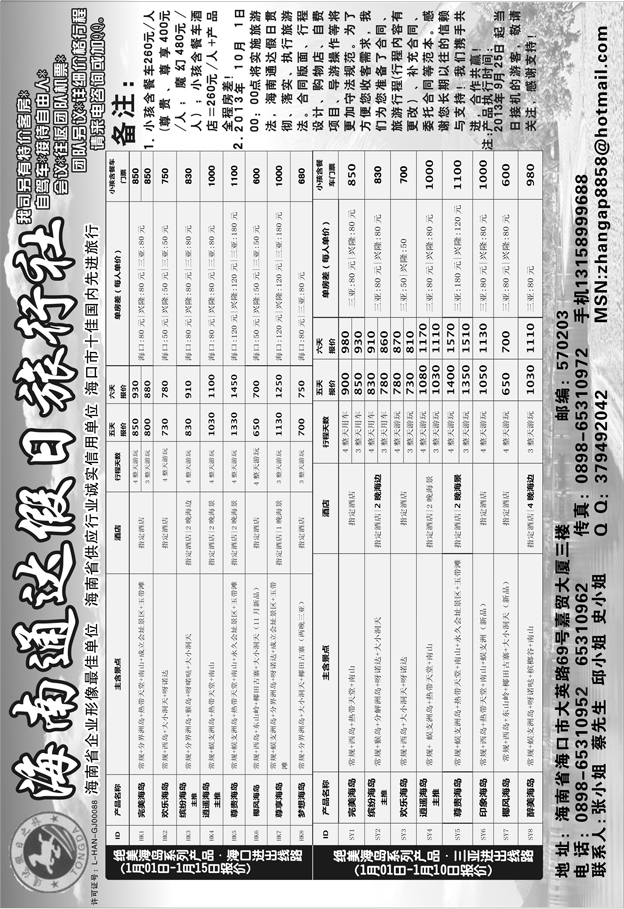 海南通达假日旅行社
许可证号：L-HAN-GJ00088
海南省企业形像最佳单位 海南省供应行业诚实信用单位 海口市十佳国内先进旅行
我司另有特价套房*
自驾车*接待自由人*
会议*往返团队机票*
团队另议*详细价格行程
情来电咨询或加QQ。
备注：
1. 小孩含餐车260元/人(尊贵、尊享400元/人；魔幻480元/人)；小孩含餐车酒店=280元/人+产品全程房差！
2.. 2013年10月1日00：00点将实施旅游法，海南通达假日贯彻、落实、执行旅游法。合同版面、行程设计、购物店、自费项目、导游操作等将更加守法规范。为了方便您收客需求，我们为您准备了合同、旅游行程(行程内容有更改)、补充合同、委托合同等范本。感谢您长期以往的信赖与支持！我们携手共进，合作共赢！
注:产品执行时间：2013年9月25日起当日接机的游客，敬请关注，感谢支持！
绝美海岛系列产品·海口进出线路
(1月01日-1月15日报价)
ID 产品名称 主含景点 酒店 行程天数 五天报价 六天报价 单房差(每人单价) 小孩含餐车门票
HK1 完美海岛 常规+分界洲岛+热带天堂+南山+成立会址景区+玉带滩 指定酒店 4整天游玩 850 930 海口:80元|兴隆:80元|三亚:80元 850
3整天游玩 800 880 850
HK2 欢乐海岛 常规+西岛+大小洞天+呀诺达 指定酒店 4整天游玩 730 780 海口:50元|兴隆:50元|三亚:50元 750
HK3 缤纷海岛 主推 常规+分界洲岛+猴岛+呀喏哒+大小洞天 指定酒店|2晚海边 4整天游玩 830 910 海口:80元|兴隆:80元|三亚:80元 830
HK4 逍遥海岛 主推 常规+蜈支洲岛+热带天堂+南山 指定酒店|2晚海景 4整天游玩 1030 1100 海口:80元|兴隆:80元|三亚:80元 1000
HK5 尊贵海岛 常规+蜈支洲岛+热带天堂+南山+永久会址景区+玉带滩 指定酒店|2晚海景 4整天游玩 1330 1450 海口:120元|兴隆:120元|三亚:180元 1100
HK6 椰风海岛 常规+西岛+东山岭+椰田古寨+大小洞天（11月新品） 指定酒店 4整天游玩 650 700 海口:50元|兴隆:50元|三亚:50元 600
HK7 尊享海岛 常规+蜈支洲岛+分界洲岛+呀诺达+成立会址景区+玉带滩 指定酒店|1晚海景 3整天游玩 1130 1250 海口:120元|兴隆:120元|三亚:180元 1000
HK8 梦想海岛 常规+分界洲岛+大小洞天+椰田古寨（两晚三亚） 指定酒店 3整天游玩 700 750 海口:80元|三亚:80元 680
绝美海岛系列产品·三亚进出线路
(1月01日-1月10日报价)
ID 产品名称 主含景点 酒店 行程天数 五天报价 六天报价 单房差（每人单价） 小孩含餐车门票
SY1 完美海岛 常规+西岛+热带天堂+南山 指定酒店 4整天用车 900 980 三亚:80元|兴隆:80元 850
3整天用车 850 930
SY2 缤纷海岛 主推 常规+猴岛+分界洲岛+呀诺达+大小洞天 指定酒店|2晚海边 4整天用车 830 910 三亚:80元|兴隆:80元 830
3整天用车 780 860
SY3 欢乐海岛 常规+西岛+大小洞天+呀诺达 指定酒店 4整天游玩 780 870 三亚:50元|兴隆:50 700
3整天游玩 730 810
SY4 逍遥海岛 主推 常规+蜈支洲岛+热带天堂+南山 指定酒店|2晚海景 4整天游玩 1080 1170 三亚:80元|兴隆:80元 1000
3整天游玩 1030 1110
SY5 尊贵海岛 常规+蜈支洲岛+热带天堂+南山+永久会址景区+玉带滩 指定酒店|2晚海景 4整天游玩 1400 1570 三亚:180元|兴隆:120元 1100
3整天游玩 1350 1510
SY6 印象海岛 常规+西岛+热带天堂+南山+蜈支洲（新品） 指定酒店 4整天游玩 1050 1130 三亚:80元|兴隆:80元 1000
SY7 椰风海岛 常规+西岛+东山岭+椰田古寨+大小洞天（新品） 指定酒店 4整天游玩 650 700 三亚:80元|兴隆:80元 600
SY8 醉美海岛 常规+蜈支洲岛+呀诺哒+槟榔谷+南山 指定酒店|4晚海边 3整天游玩 1030 1110 三亚:80元 980
地址：海南省海口市大英路69号嘉贸大厦三楼 邮编：570203
电话：0898-65310952 65310962 传真：0898-65310972 手机13158999688
联系人:张小姐 蔡先生 邱小姐 史小姐 Q Q：379492042 MSN:zhangap8858@hotmail.com